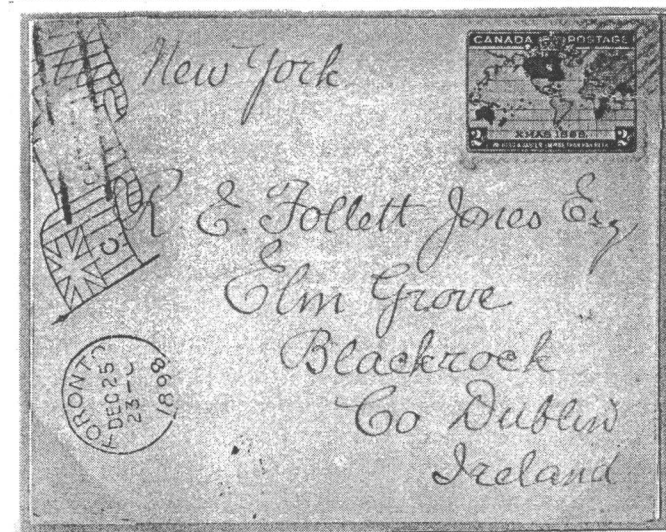 New York
CANADA POSTAGE
XMAS 1898
2 2
R. E. Follett-Jones Esq
Elm Grove
Blackrock
Co Dublin
Ireland
C
TORONTO
DEC 25
23-
1898